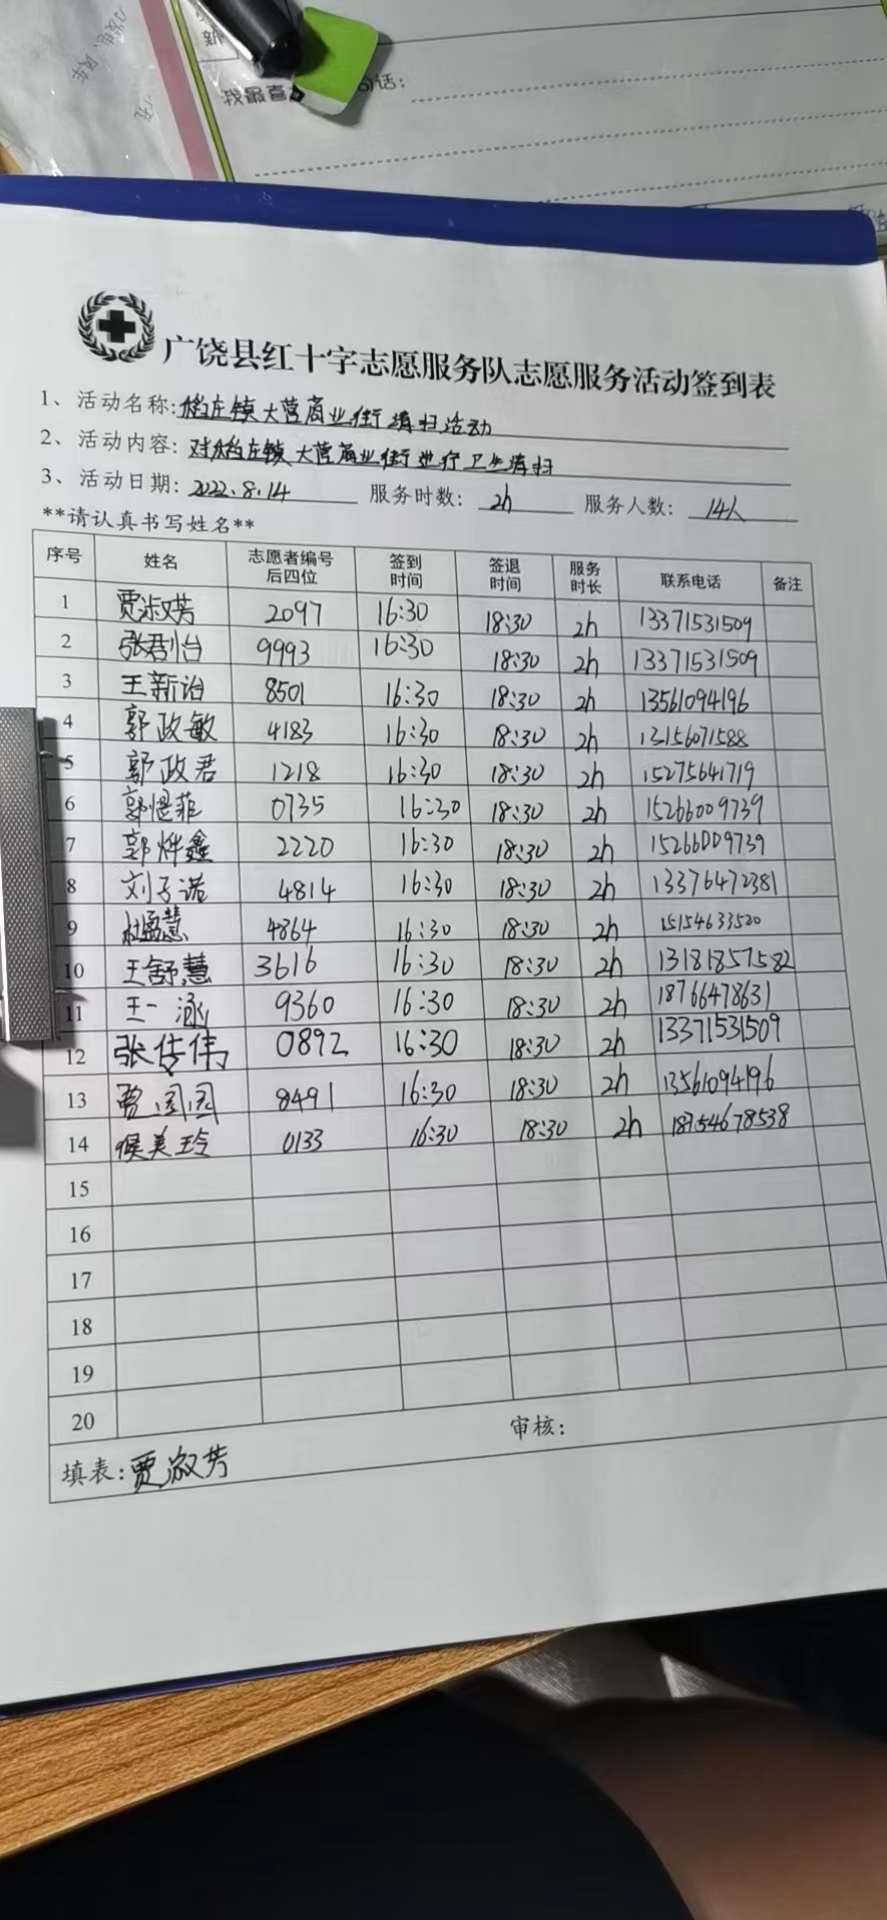 我最喜
话:
广饶县红十字志愿服务队志愿服务活动签到表
1、活动名称:稻庄镇大营商业街清扫活动
2、活动内容:对稻庄镇大营商业街进行卫生清扫
3、活动日期:2022.8.14 服务时数:2h 服务人数:14人
**请认真书写姓名**
序号 姓名 志愿者编号后四位 签到时间 签退时间 服务时长 联系电话 备注
1 贾淑芳 2097 16:30 18:30 2h 13371531509
2 张剧怡 9993 16:30 18:30 2h 13371531509
3 王新诒 8501 16:30 18:30 2h 13561094196
4 郭政敏 4183 16:30 18:30 2h 13156071588
5 郭政君 1218 16:30 18:30 2h 15275641719
6 郭煜菲 0735 16:30 18:30 2h 15266009739
7 郭烨鑫 2220 16:30 18:30 2h 15266009739
8 刘子诺 4814 16:30 18:30 2h 13376472381
9 杜孟慧 4864 16:30 18:30 2h 15154633520
10 王舒慧 3616 16:30 18:30 2h 13181857582
11 王一涵 9360 16:30 18:30 2h 18766478631
12 张传伟 0892 16:30 18:30 2h 13371531509
13 贾园园 8491 16:30 18:30 2h 13561094196
14 侯美玲 0133 16:30 18:30 2h 18754678538
15
16
17
18
19
20
填表:贾淑芳 审核: